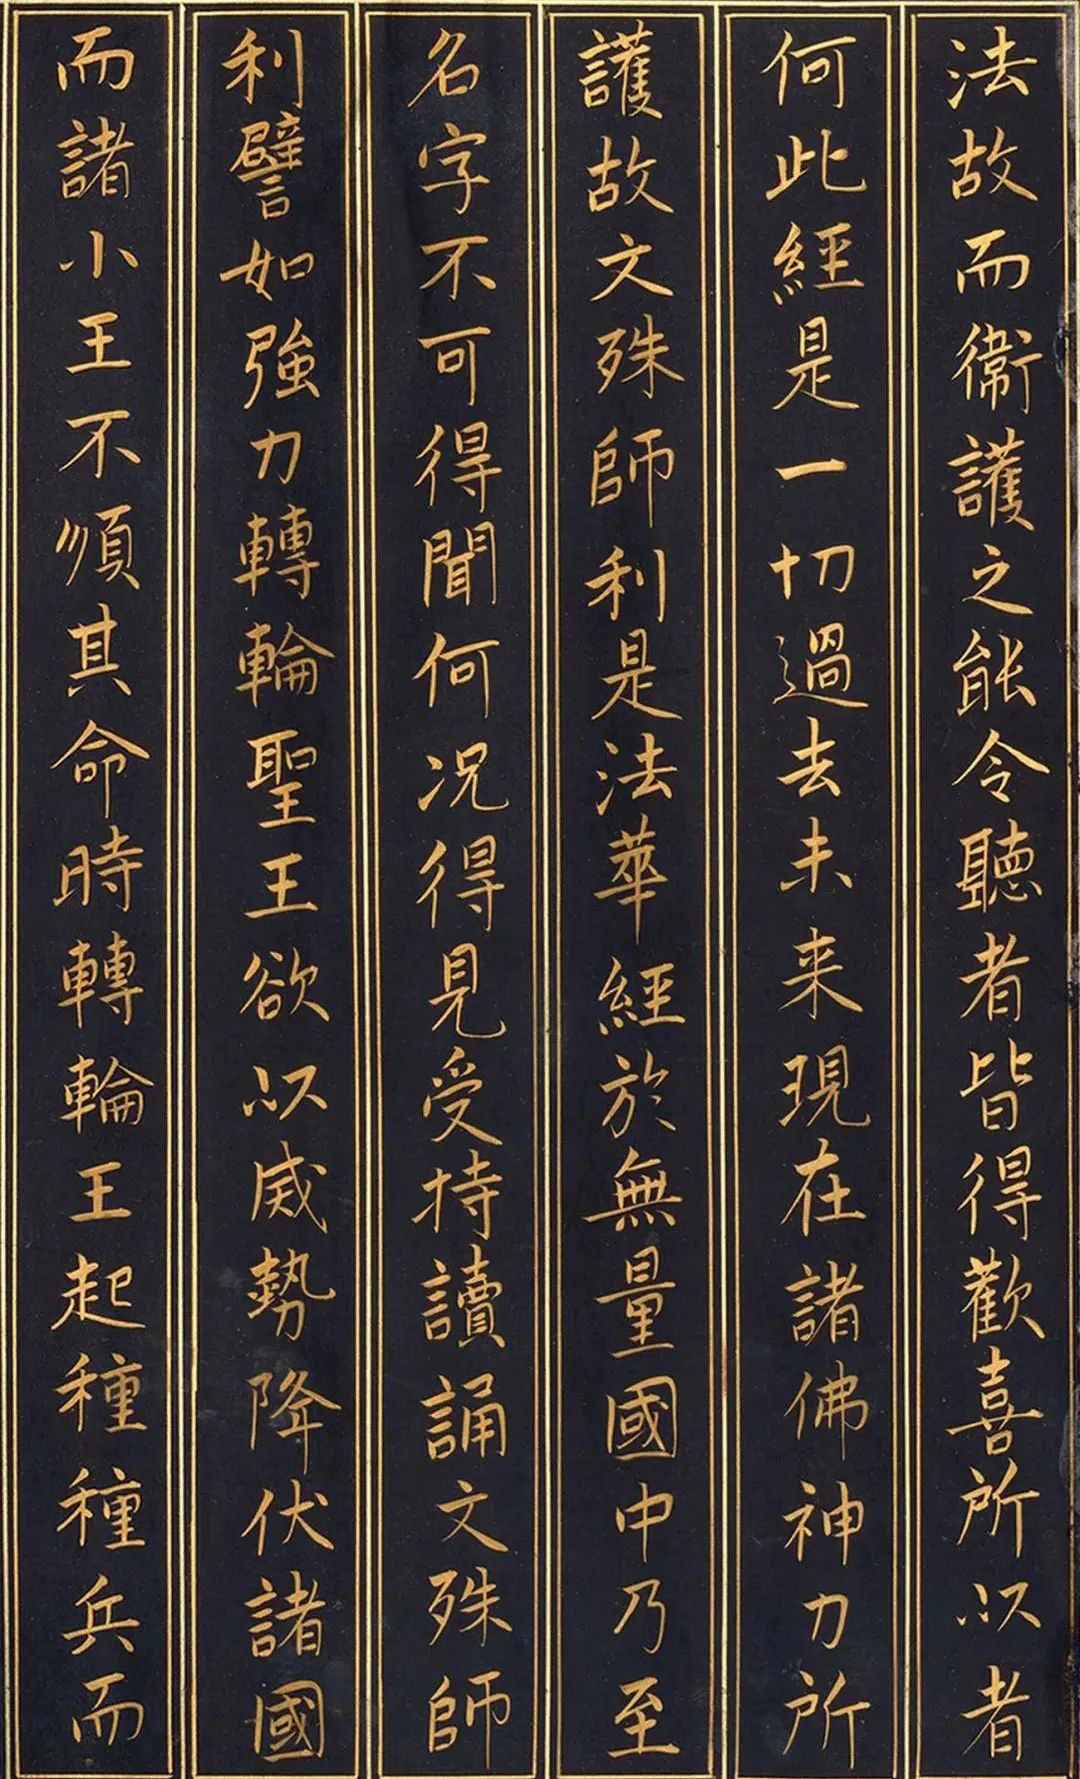 法故而衞護之能令聽者皆得歡喜所以者
何此經是一切過去未来現在諸佛神力所
護故文殊師利是法華經於無量國中乃至
名字不可得聞何况得見受持讀誦文殊師
利譬如強力轉輪聖王欲以威勢降伏諸國
而諸小王不順其命時轉輪王起種種兵而